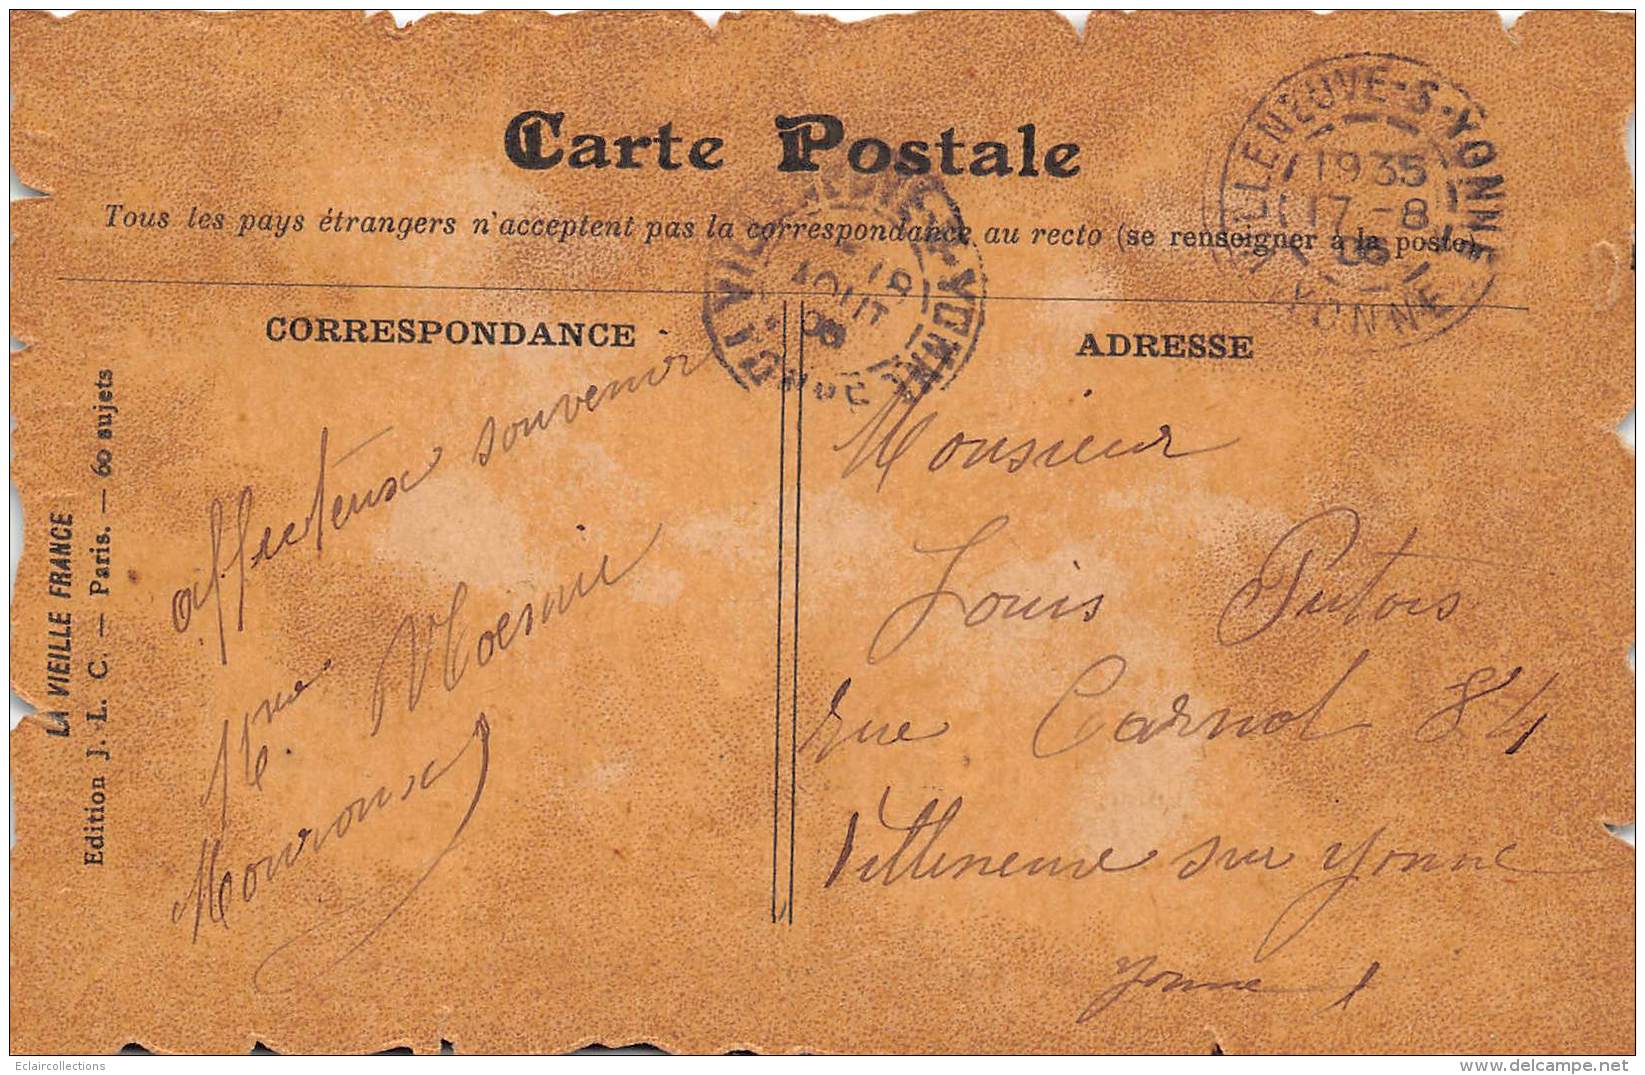 Carte Postale
Tous les pays étrangers n'acceptent pas la correspondance au recto (se renseigner à la poste)
VILLENEUVE-S-YONNE
1935
17-8
06
YONNE
AOUT
06
CORRESPONDANCE
ADRESSE
affectueux souvenir
Mouroux
Monsieur
Louis Putois
rue Carnot 84
Villeneuve sur Yonne
Yonne
LA VIEILLE FRANCE
Edition J. L. C. — Paris. — 60 sujets
Eclaircollections
www.delcampe.net